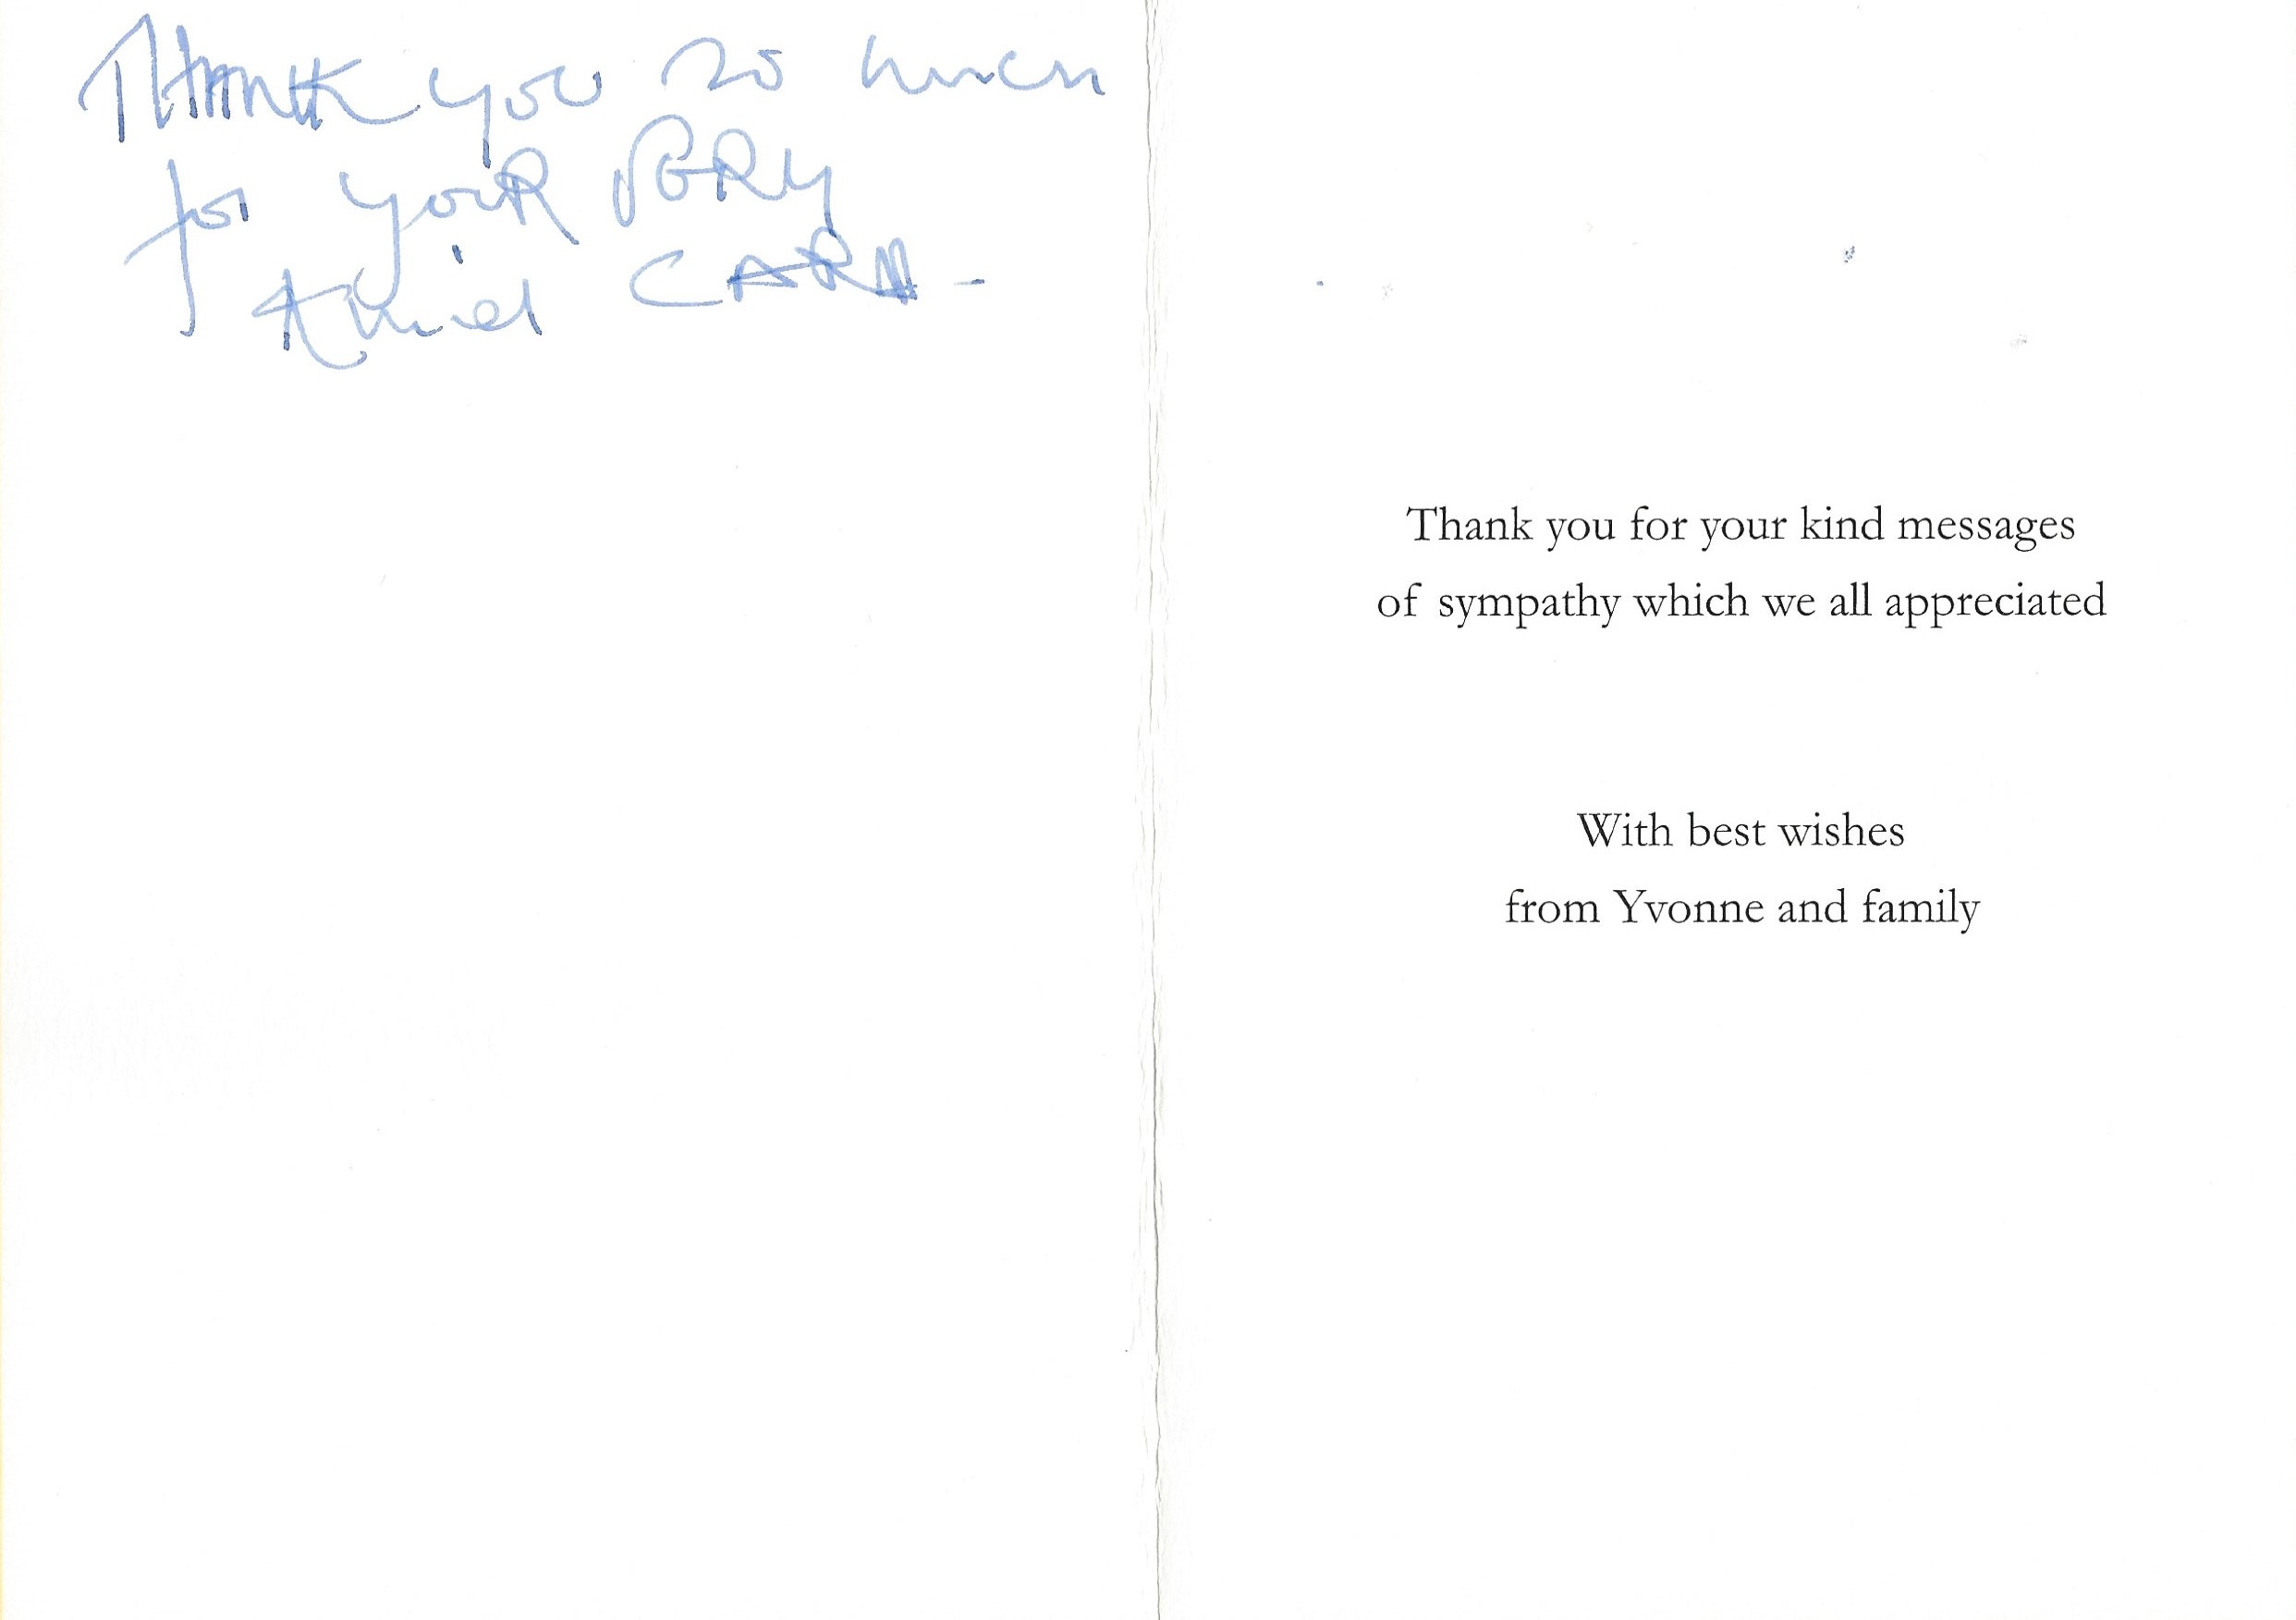 THANK you so much
for youR VERY
kind CARD -
Thank you for your kind messages
of sympathy which we all appreciated
With best wishes
from Yvonne and family